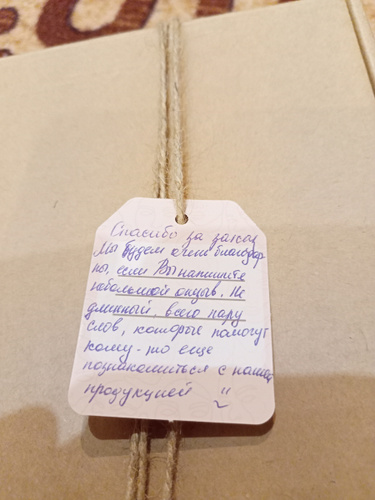 Спасибо за заказ
Мы будем очень благодар
ны, если Вы напишите
небольшой отзыв. Не
длинный, всего пару
слов, которые помогут
кому-то еще
познакомиться с нашей
продукцией